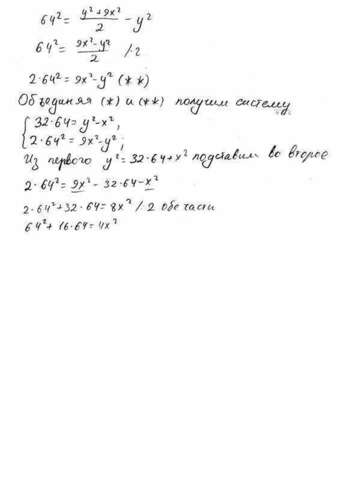 64² = (y² + 9x²)/2 - y²
64² = (9x² - y²)/2 /·2
2·64² = 9x² - y² (**)
Объединяя (*) и (**) получим систему
{ 32·64 = y² - x²,
{ 2·64² = 9x² - y²;
Из первого y² = 32·64 + x² подставим во второе
2·64² = 9x² - 32·64 - x²
2·64² + 32·64 = 8x² /:2 обе части
64² + 16·64 = 4x²